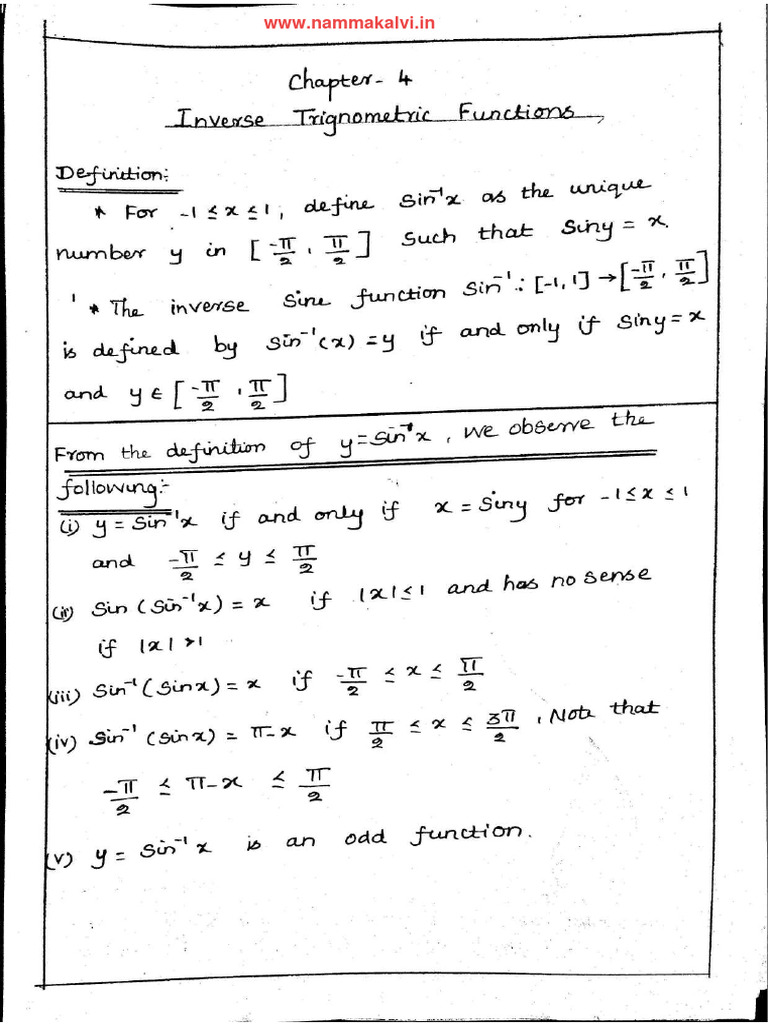 www.nammakalvi.in
Chapter- 4
Inverse Trignometric Functions,
Definition:
* For -1 ≤ x ≤ 1, define Sin⁻¹x as the unique
number y in [-π/2, π/2] Such that Siny = x.
* The inverse Sine function Sin⁻¹: [-1, 1] → [-π/2, π/2]
is defined by Sin⁻¹(x) = y if and only if Siny = x
and y ∈ [-π/2, π/2]
From the definition of y = Sin⁻¹x, we observe the
following:-
(i) y = Sin⁻¹x if and only if x = Siny for -1 ≤ x ≤ 1
and -π/2 ≤ y ≤ π/2
(ii) Sin (Sin⁻¹x) = x if |x| ≤ 1 and has no sense
if |x| > 1
(iii) Sin⁻¹ (Sinx) = x if -π/2 ≤ x ≤ π/2
(iv) Sin⁻¹ (Sinx) = π-x if π/2 ≤ x ≤ 3π/2, Note that
-π/2 ≤ π-x ≤ π/2
(v) y = Sin⁻¹x is an odd function.